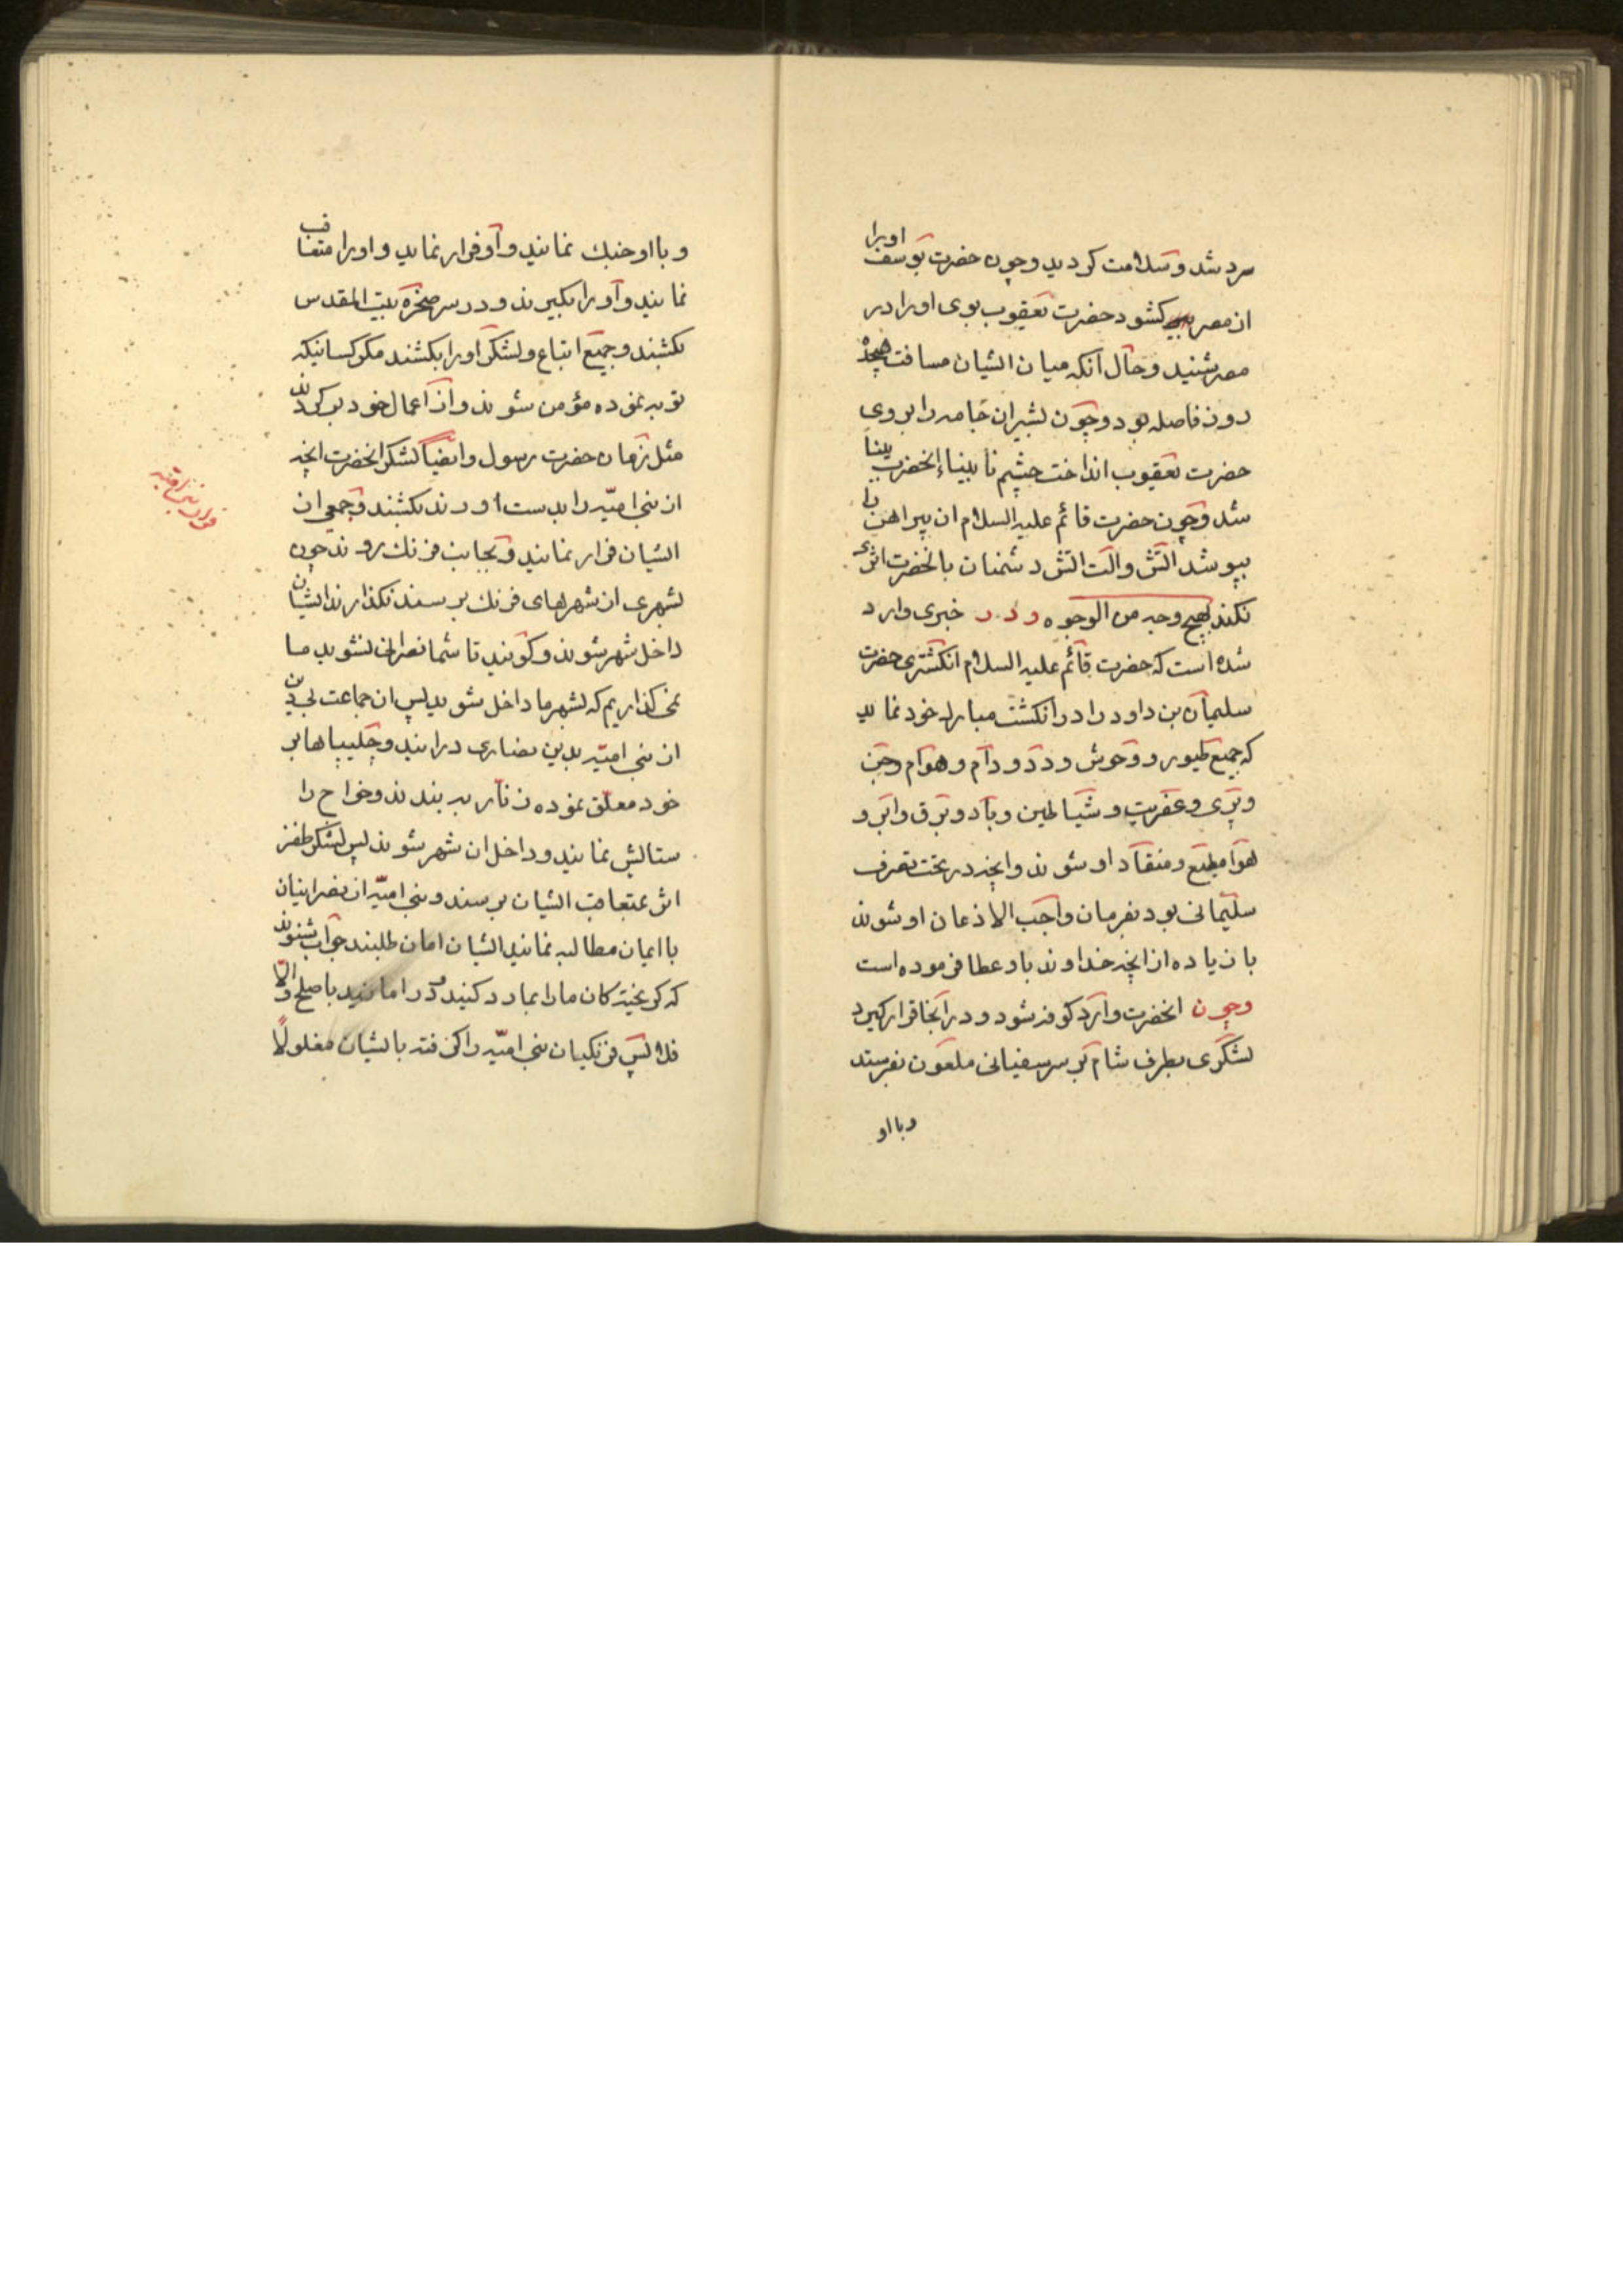 سرد شد و سلامت كرديد وچون حضرت يوسف اويرا
از مصر كشود حضرت يعقوب بوى اورا در
مصر شنيد وحال آنكه ميان ايشان مسافت هيجده
روز فاصله بود وچون بشير ان جامه را بر روى
حضرت يعقوب انداخت چشم نابيناء انحضرت بينا
شد وچون حضرت قائم عليه السلام ان پيراهن را
بپوشد آتش والت آتش دشمنان بانحضرت اثرى
نكند بهيچ وجه من الوجوه ودر خبرى وارد
شده است كه حضرت قائم عليه السلام انكشترى حضرت
سليمان بن داود را در انكشت مبارك خود نمايد
كه جميع طيور و وحوش ودد ودام وهوام وجن
وپرى وعفريت وشياطين وباد وبرق وابر و
هوا مطيع ومنقاد او شوند وانچه در تخت تصرف
سليمانى بود بفرمان واجب الاذعان او شوند
با زياده از انچه خداوند باو عطا فرموده است
وچون انحضرت وارد كوفه شود ودر آنجا قرار كيرد
لشكرى بطرف شام بر سر سفيانى ملعون بفرستد
وبا او
وبا او جنك نمايند واو فرار نمايد و اورا متعاقب
نمايند واورا بكيرند ودر سر صخره بيت المقدس
بكشند وجميع اتباع ولشكر اورا بكشند مكر كسانيكه
توبه نموده مؤمن شوند واز اعمال خود بر كردند
مثل زمان حضرت رسول وايضا لشكر انحضرت انچه
از بنى اميّه را بدست اورند بكشند وجمعى از
ايشان فرار نمايند وبجانب فرنك روند چون
بشهرى از شهرهاى فرنك برسند نكذارند ايشان
داخل شهر شوند وكويند تا شما نصرانى نشويد ما
نمى كذاريم كه بشهر ما داخل شويد پس ان جماعت بى دين
از بنى اميّه بدين نصارى درايند وچليپاها بر
خود معلق نموده زنار به بندند وخواج را
ستايش نمايند وداخل ان شهر شوند پس لشكر ظفر
اثر بتعاقب ايشان برسند وبنى اميّه از نصرانيان
با ايمان مطالبه نمايند ايشان امان طلبند جواب شنوند
كه كريخته كان ما را بما رد كنيد و در امانيد باصلح والّا
فلا پس فرنكيان بنى اميّه را كرفته بايشان مغلولًا